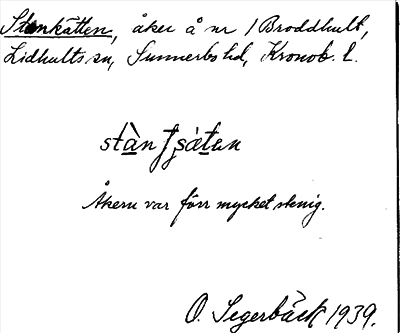 Stenkätten, åker å nr 1 Broddhult,
Lidhults sn, Sunnerbo hd, Kronob. l.
Åkern var förr mycket stenig.
O. Segerbäck 1939.